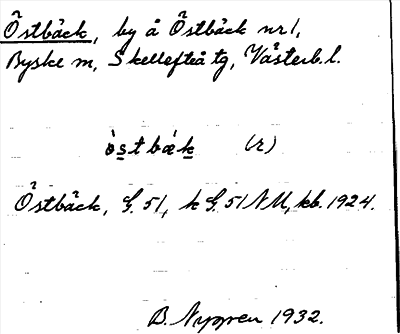 Östbäck, by å Östbäck nr 1,
Byske sn, Skellefteå tg, Västerb. l.
östbäk (r)
Östbäck, G. 51, h G. 51 NU, kb. 1924.
B. Nygren 1932.